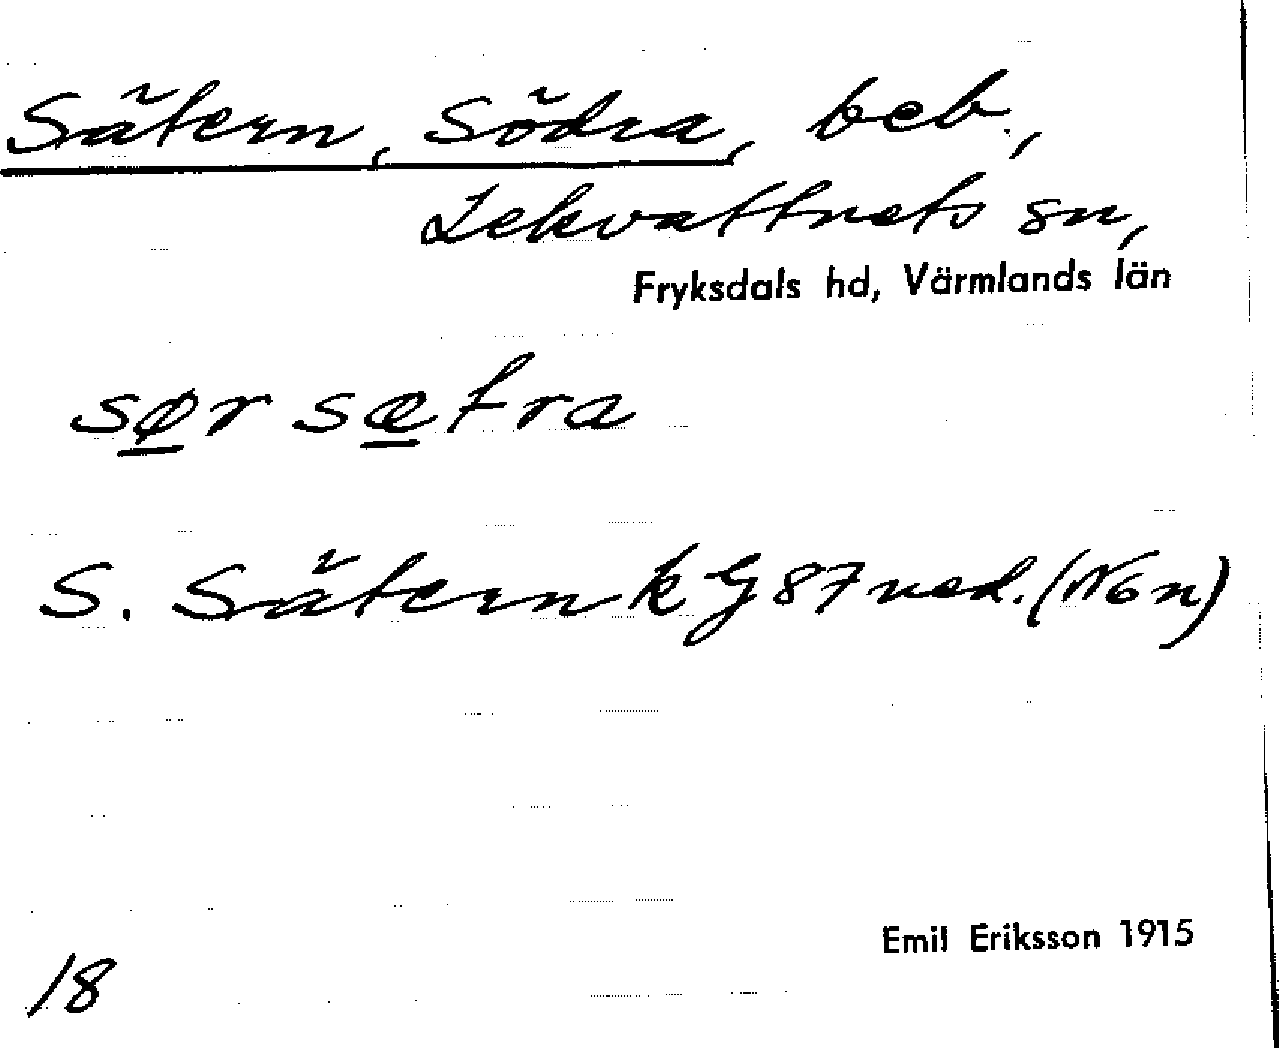 Sätern, Södra, beb.,
Lekvattnets sn,
Fryksdals hd, Värmlands län
sør sætra
S. Sätern k G 87 ned. (N6n)
Emil Eriksson 1915
18